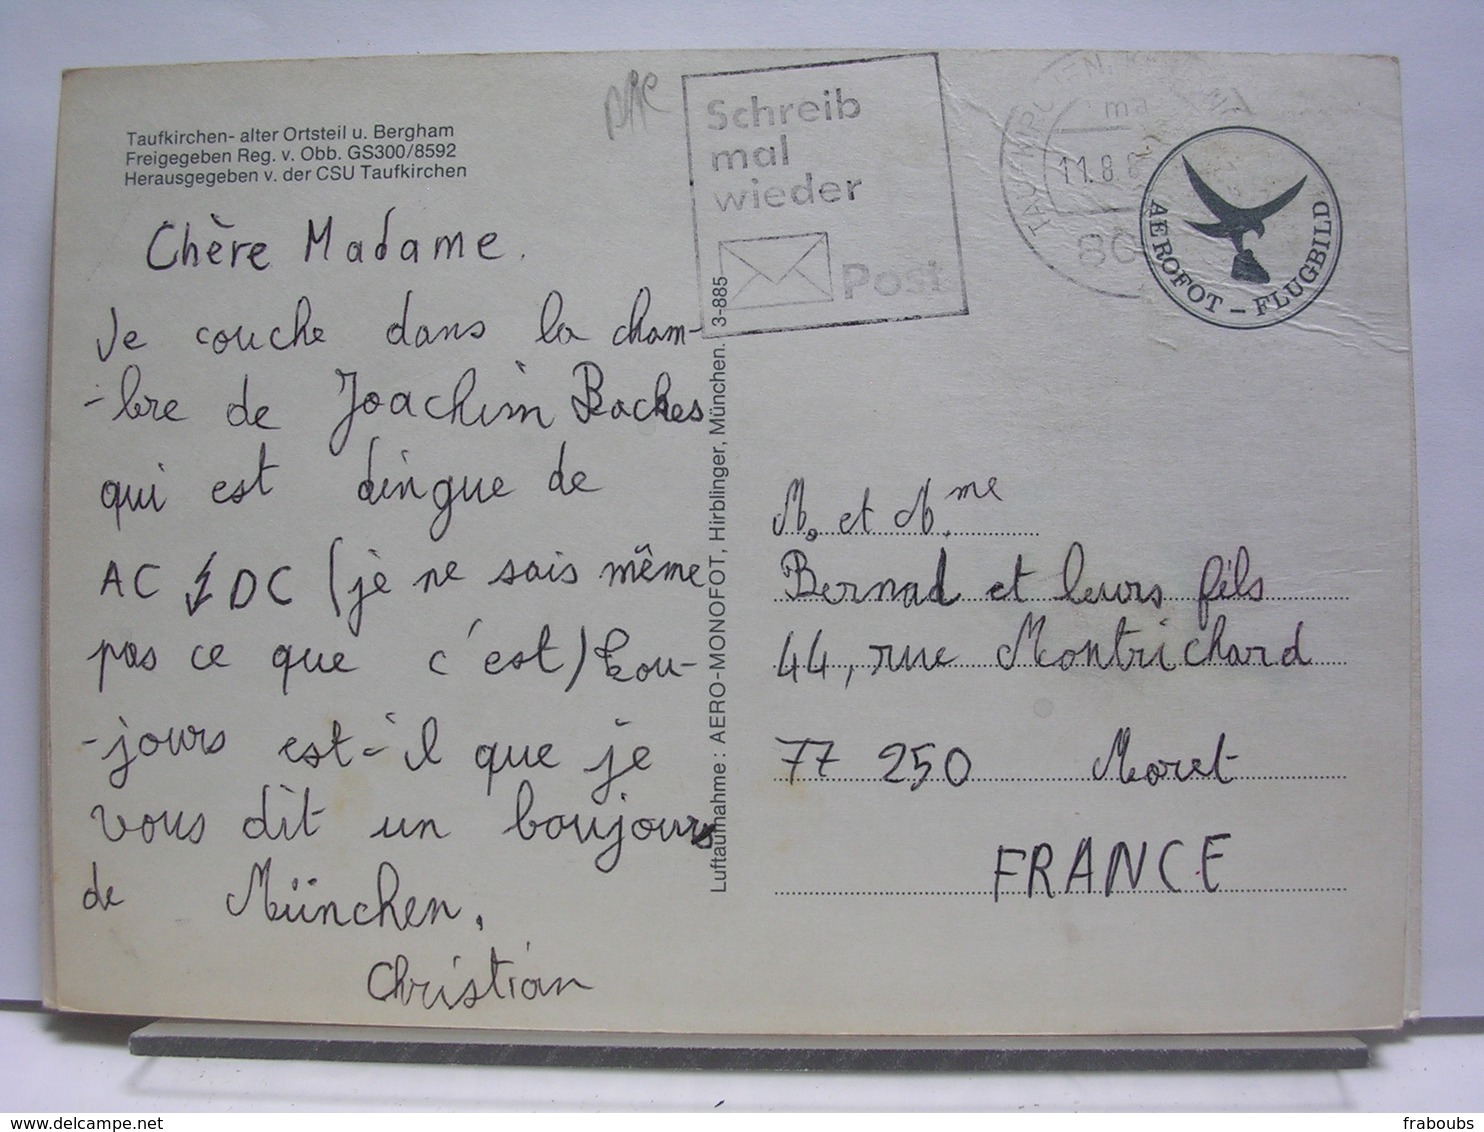 Taufkirchen- alter Ortsteil u. Bergham
Freigegeben Reg. v. Obb. GS300/8592
Herausgegeben v. der CSU Taufkirchen
Chère Madame.
Je couche dans la cham-
-bre de Joachim Backes
qui est dingue de
AC ⚡ DC (je ne sais même
pas ce que c'est) tou-
-jours est-il que je
vous dit un boujours
de München.
Christian
Luftaufnahme : AERO-MONOFOT, Hirblinger, München. 3-885
Schreib
mal
wieder
Post
11.8.8
AEROFOT – FLUGBILD
M. et M.me
Bernad et leurs fils
44, rue Montrichard
77 250 Moret
FRANCE
fraboubs